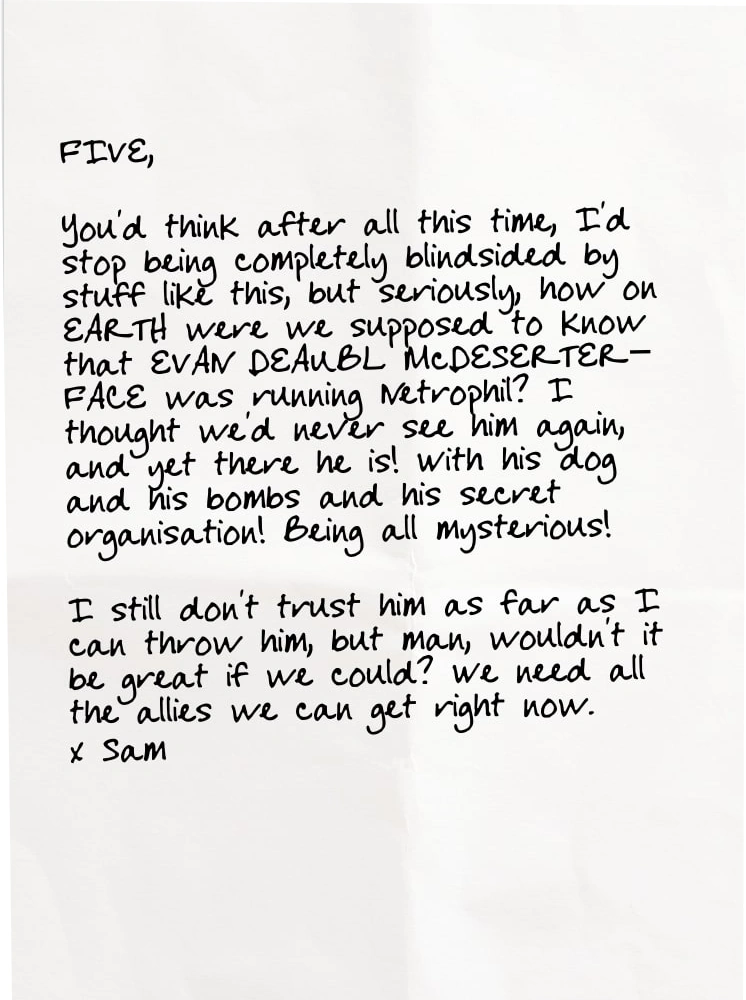 FIVE,
You'd think after all this time, I'd
stop being completely blindsided by
stuff like this, but seriously, how on
EARTH were we supposed to know
that EVAN DEAUBL McDESERTER-
FACE was running Netrophil? I
thought we'd never see him again,
and yet there he is! With his dog
and his bombs and his secret
organisation! Being all mysterious!
I still don't trust him as far as I
can throw him, but man, wouldn't it
be great if we could? We need all
the allies we can get right now.
x Sam